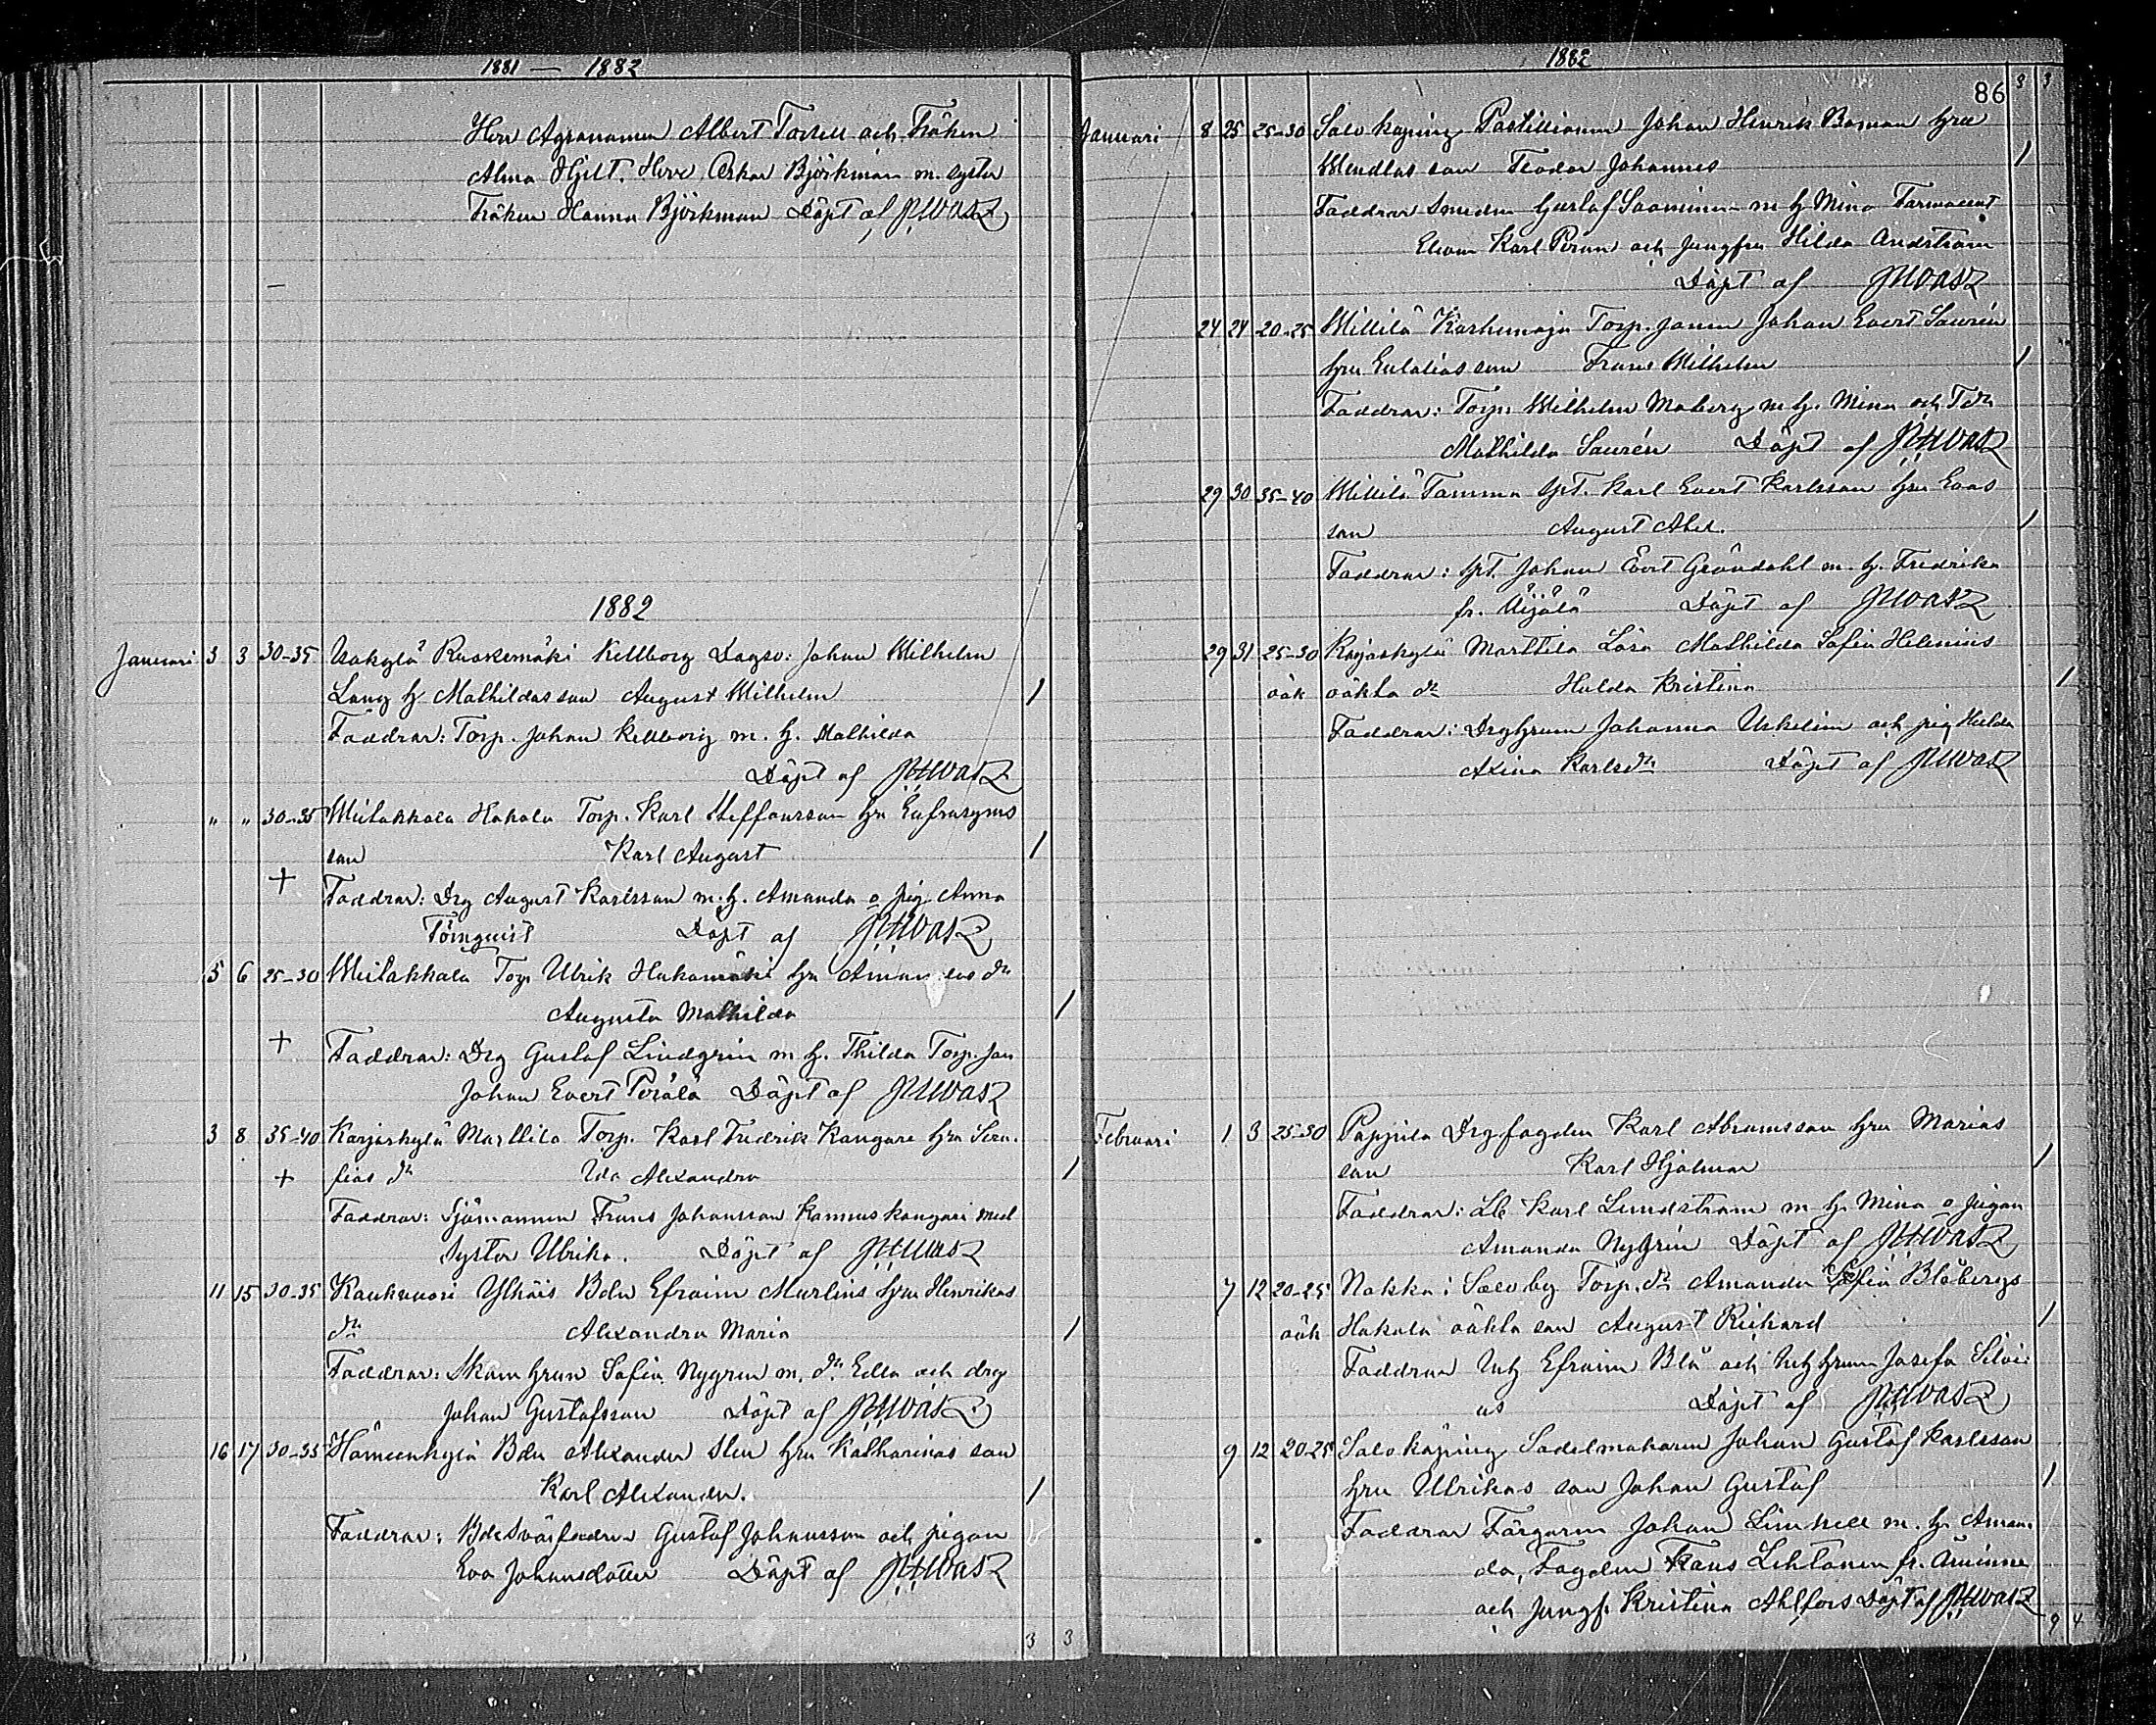 1881 — 1882
Herr Agronomen Albert Torsell och Fröken
Alma Hjelt. Herr Oskar Björkman m. syster
Fröken Hanna Björkman Döpt af
1882
Januari 3 3 30-35 Uskylä Ruskemäki Kellborg Dagsv: Johan Wilhelm
Lang h Mathildas son August Wilhelm 1
Faddrar: Torp. Johan Kellborg m. h. Mathilda
Döpt af
" " 30-35 Torp. Karl Steffansson hu Eufrasynes
son Karl August 1
+ Faddrar: Drg August Karlsson m. h. Amanda o pig. Anna
Törnqvist Döpt af
5 6 25-30 Torp Ulrik Hakamäki hu dr
Augusta Mathilda 1
+ Faddrar: Drg Gustaf Lindgrén m h. Thilda Torp. son
Johan Evert Perälä Döpt af
3 8 35-40 Karjaskylä Marttila Torp. Karl Fredrik Kangare hu Sera-
+ fias dr Ida Alexandra 1
Faddrar: Sjömannen Frans Johansson med
syster Ulrika. Döpt af
11 15 30-35 Kaukvuori Ylhäis Bdn Efraim Murlins hu Henrikas
dr Alexandra Maria 1
Faddrar: Skom hrun Sofia Nygren m. dr Edla och drg
Johan Gustafsson Döpt af
16 17 30-35 Hämeenkylä Bdn Alexander Sten hu Katharinas son
Karl Alexander. 1
Faddrar: Gustaf Johansson och pigan
Eva Johansdotter Döpt af
3 3
1882
86 3 3
Januari 8 25 25-30 Salo köping Postillionen Johan Henrik Boman hru
Wendlas son Teodor Johannes 1
Faddrar Smeden Gustaf Saominen m h Mina Farmaceut
Eleven Karl Peran och Jungfru Hilda Andström
Döpt af
24 24 20-25 Karhumaja Torp. sonen Johan Evert Saurén
hru Eulalias son Frans Wilhelm 1
Faddrar: Torp. Wilhelm Moberg m h. Mina och T dr
Mathilda Saurén Döpt af
29 30 35-40 Tamma spt. Karl Evert Karlsson hru Evas
son August Abel. 1
Faddrar: spt. Johan Evert Gröndahl m. h. Fredrika
fr. Äijälä Döpt af
29 31 25-30 Karjaskylä Marttila Lösa Mathilda Sofia Helenius
oäk oäkta dr Hulda Kristina 1
Faddrar: Drghrun Johanna och pig Hulda
Axina Karlsdr Döpt af
Februari 1 3 25-30 Pappila Drg fogden Karl Abramsson hru Marias
son Karl Hjalmar 1
Faddrar: Karl Lundström m h. Mina o pigan
Amanda Nygrén Döpt af
7 12 20-25 Nakka i Salo by Torp. dr Amanda Sofia Blåbergs
oäk Hakala oäkta son August Richard 1
Faddrar Inh Efraim Blå och Inh hrun Josefa Silvi-
us Döpt af
9 12 20-25 Salo köping Sadelmakaren Johan Gustaf Karlsson
hru Ulrikas son Johan Gustaf 1
Faddrar Färgaren Johan Linnell m. h. Aman-
da, Fogden Frans Lehtonen fr. Åminne
och Jungf. Kristina Ahlfors Döpt af
9 4